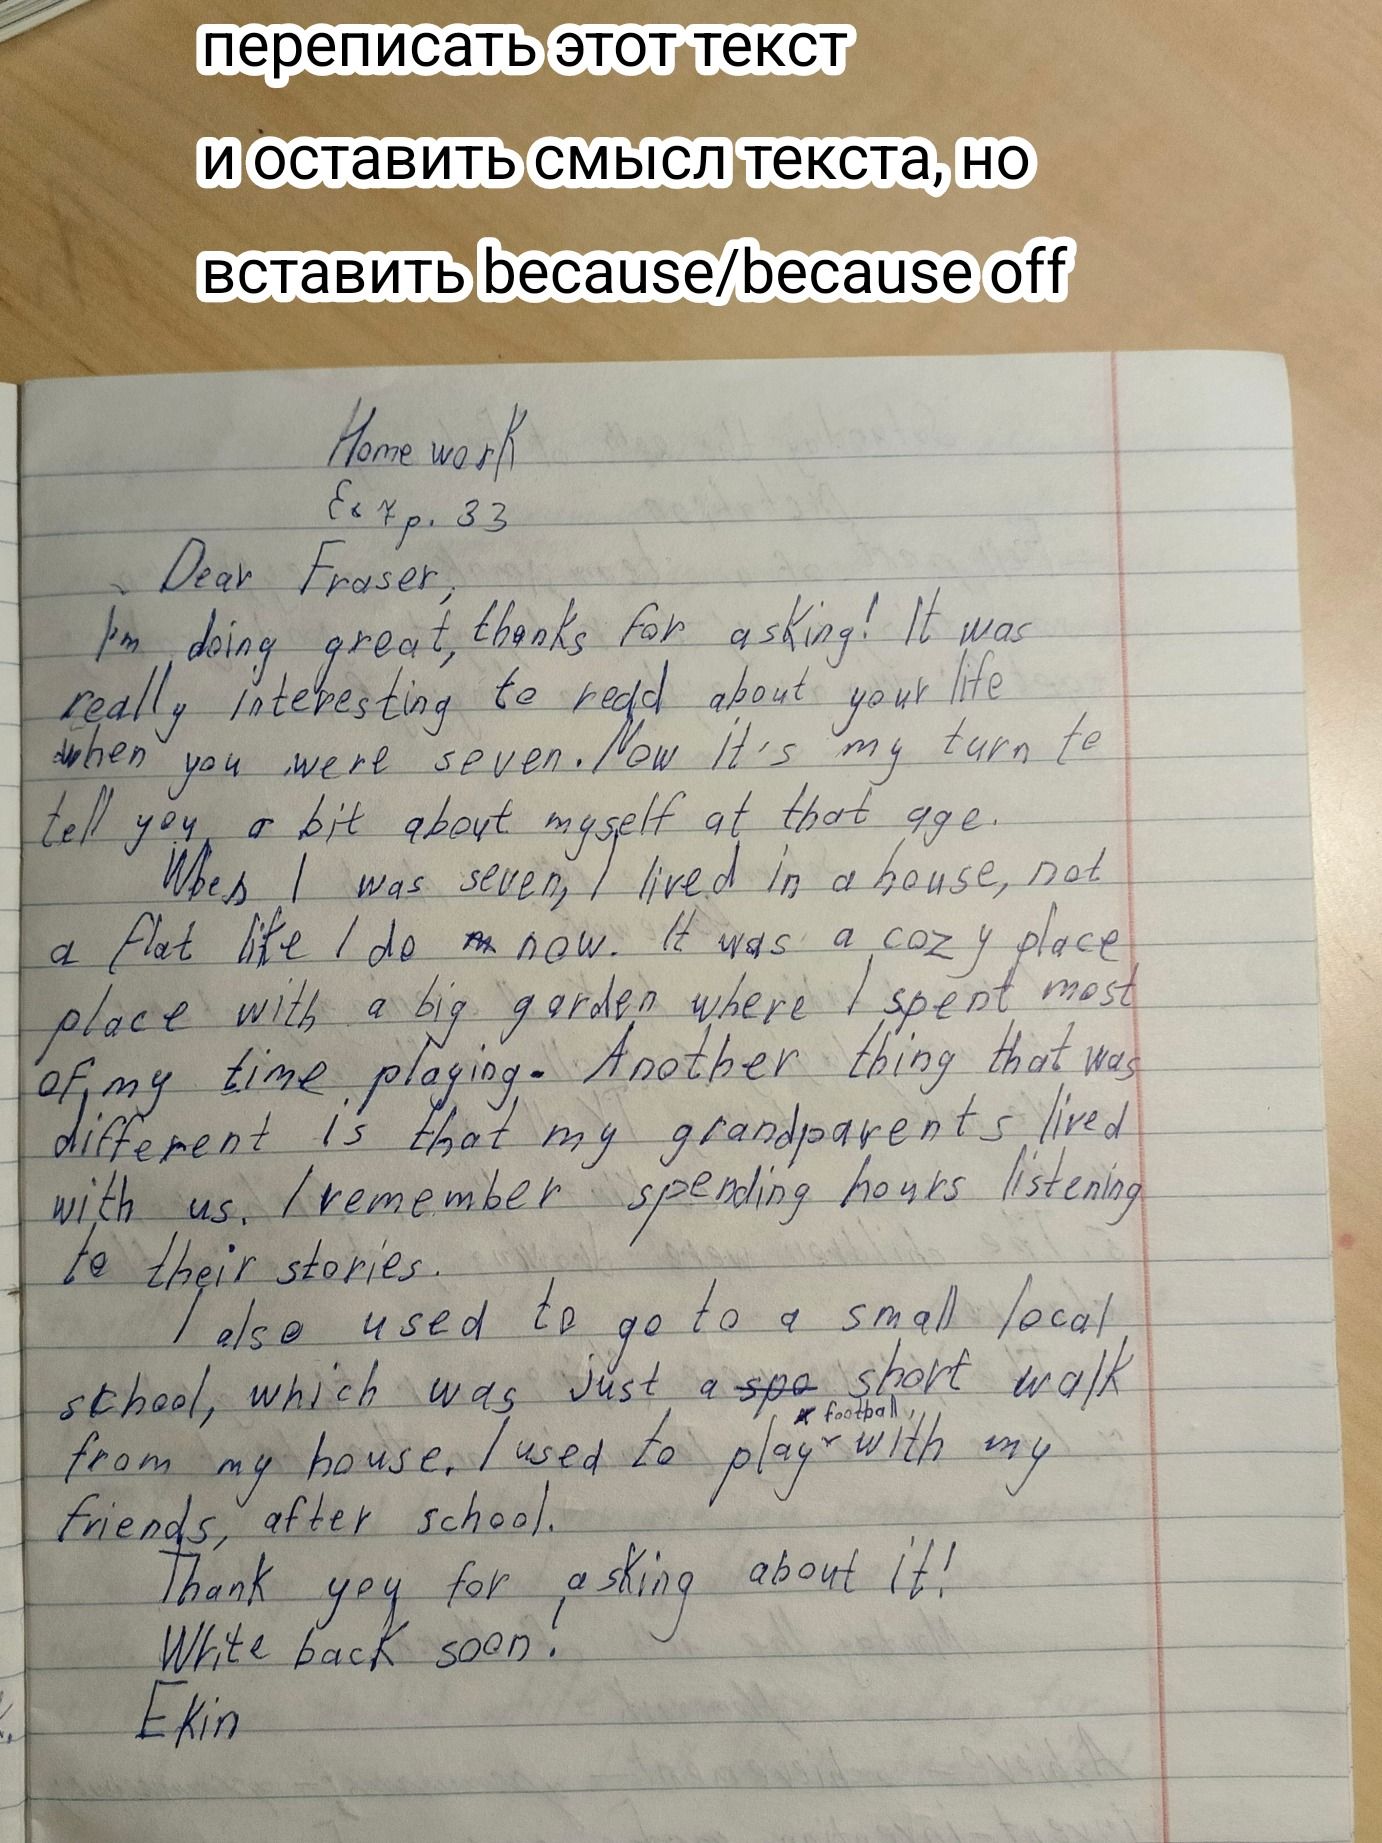 переписать этот текст
и оставить смысл текста, но
вставить because/because off
Home work
Ex 7 p. 33
Dear Fraser,
I'm doing great, thanks for asking! It was
really interesting to read about your life
when you were seven. Now it's my turn to
tell you a bit about myself at that age.
When I was seven, I lived in a house, not
a flat like I do now. It was a cozy place
place with a big garden where I spent most
of my time playing. Another thing that was
different is that my grandparents lived
with us. I remember spending hours listening
to their stories.
I also used to go to a small local
school, which was just a short walk
from my house. I used to play football with my
friends, after school.
Thank you for asking about it!
Write back soon!
Ekin